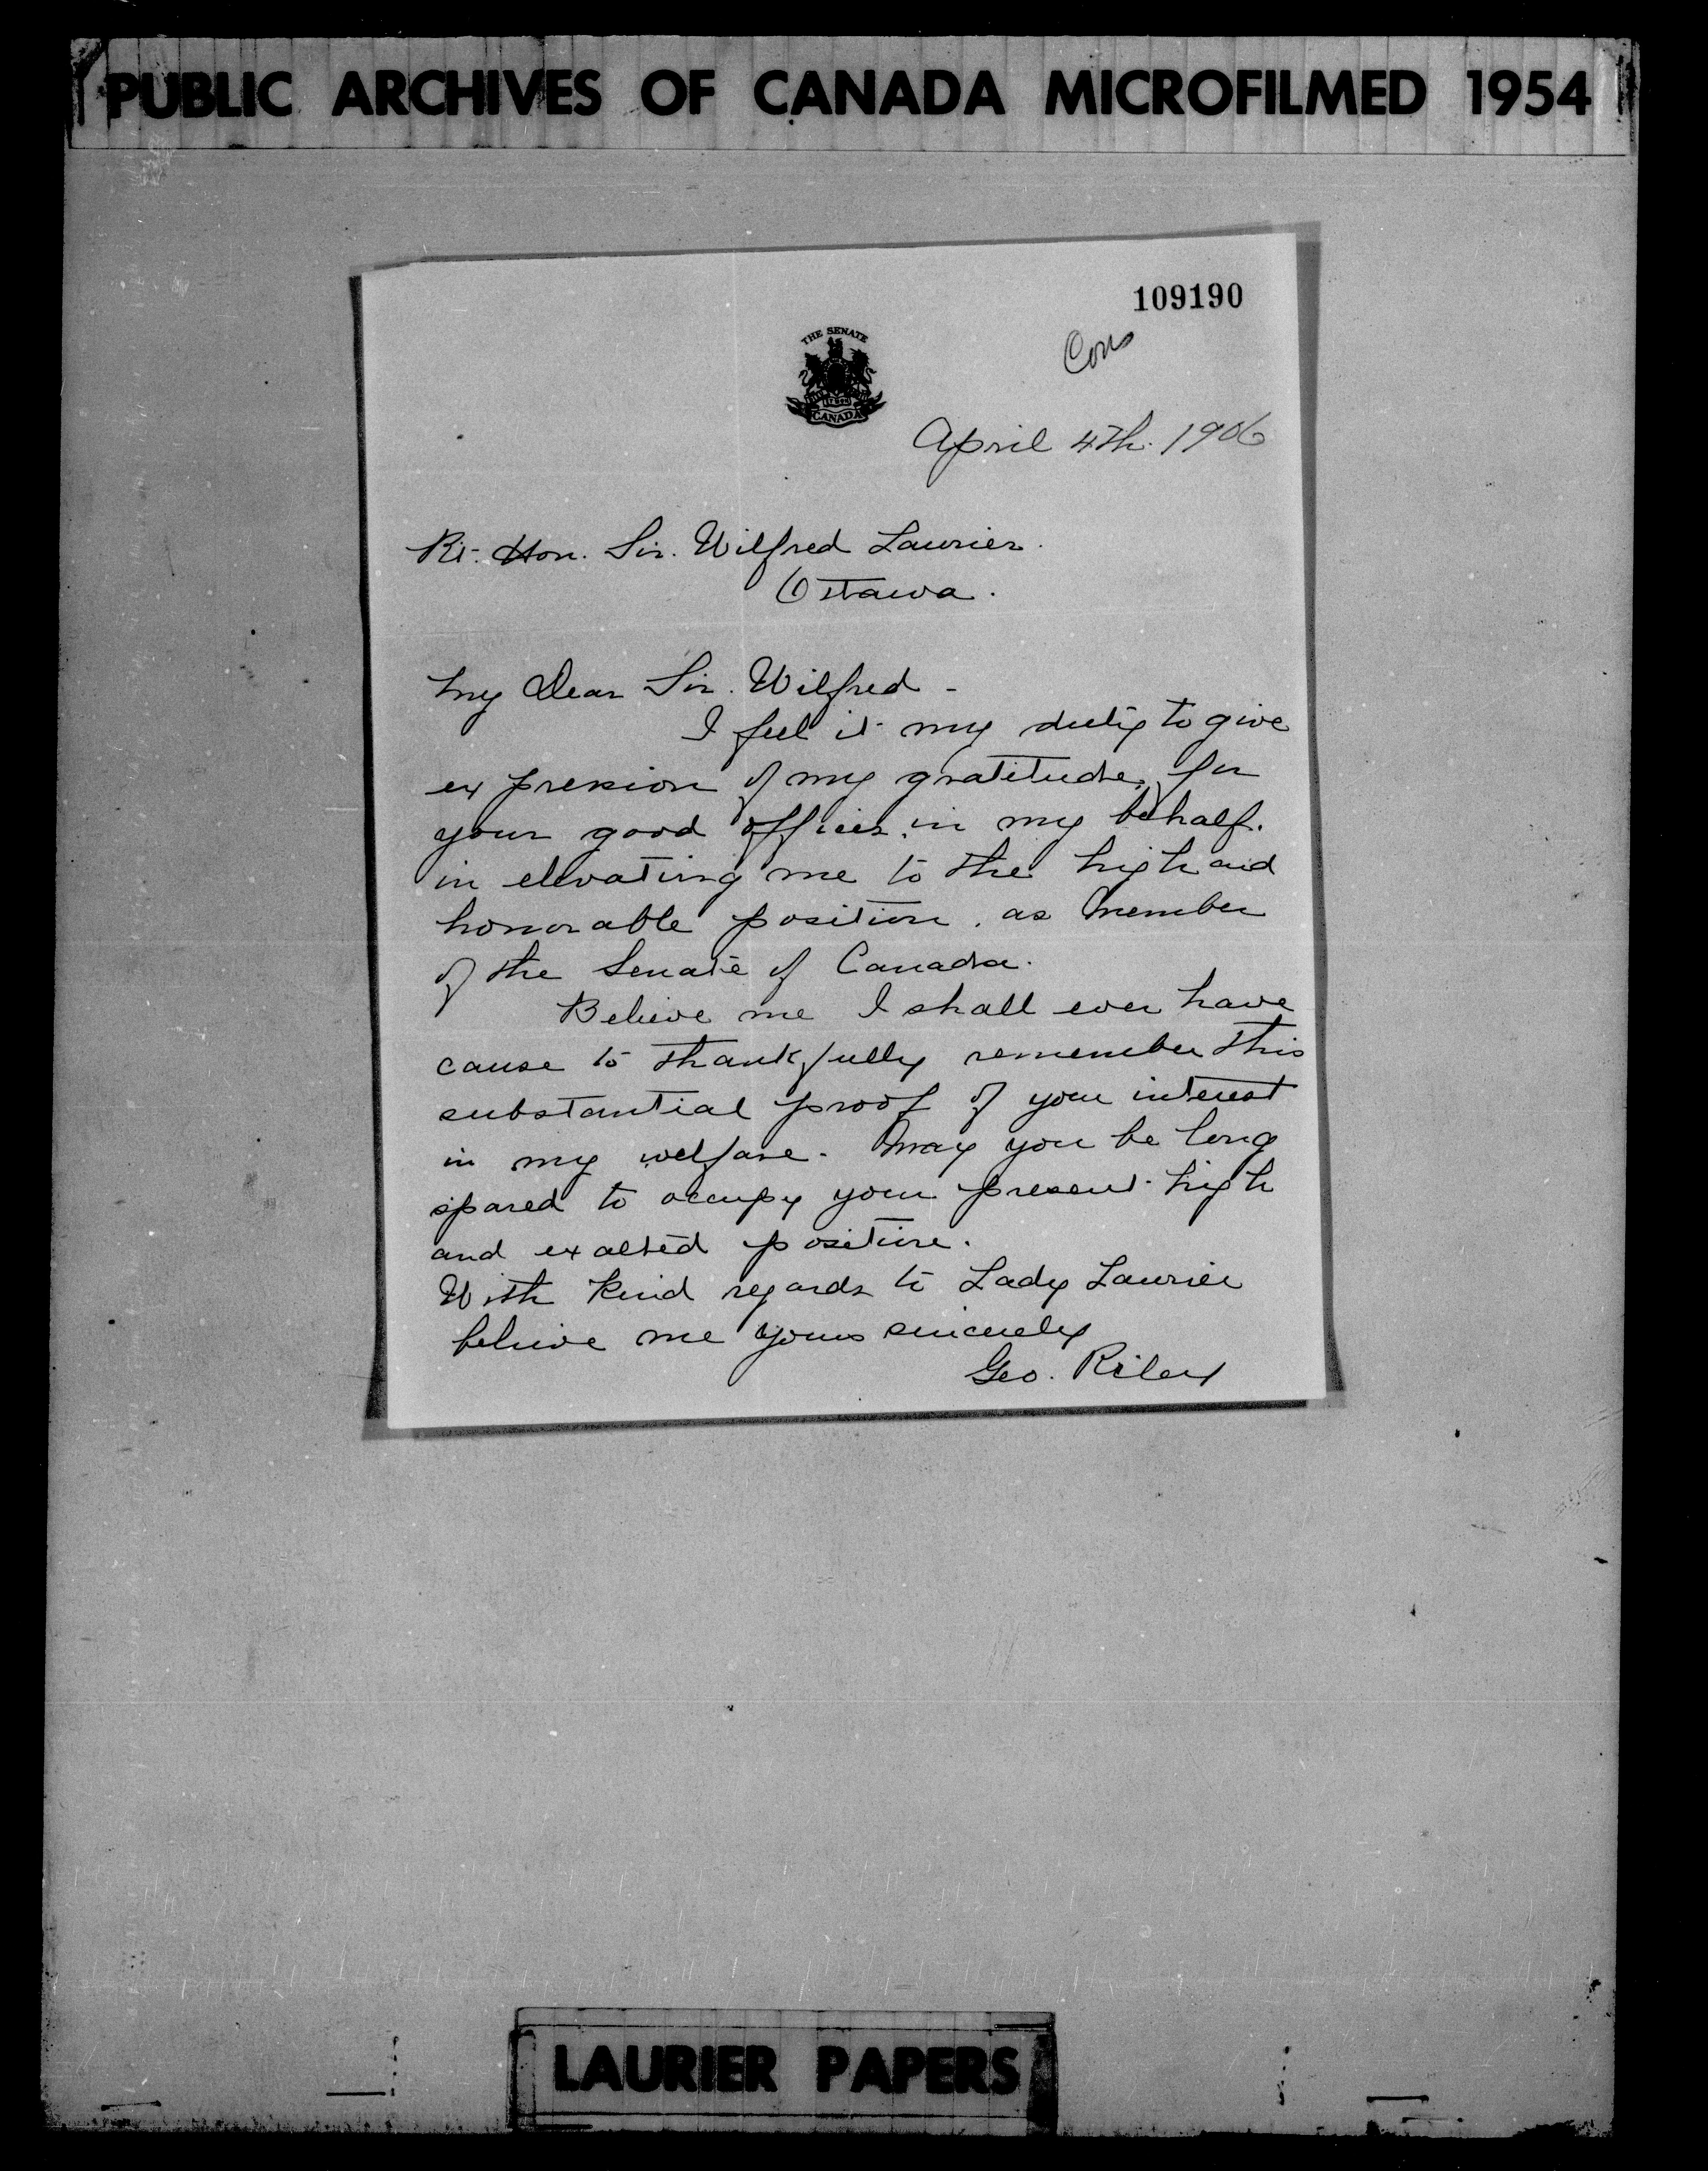 PUBLIC ARCHIVES OF CANADA MICROFILMED 1954
109190
Cons
THE SENATE
CANADA
April 4th. 1906
Rt. Hon. Sir. Wilfred Laurier.
Ottawa.
My Dear Sir. Wilfred -
I feel it my duty to give
expression of my gratitude, for
your good offices in my behalf.
in elevating me to the high and
honorable position, as Member
of the Senate of Canada.
Believe me I shall ever have
cause to thankfully remember this
substantial proof of your interest
in my welfare. May you be long
spared to occupy your present high
and exalted position.
With kind regards to Lady Laurier
believe me yours sincerely
Geo. Riley
LAURIER PAPERS